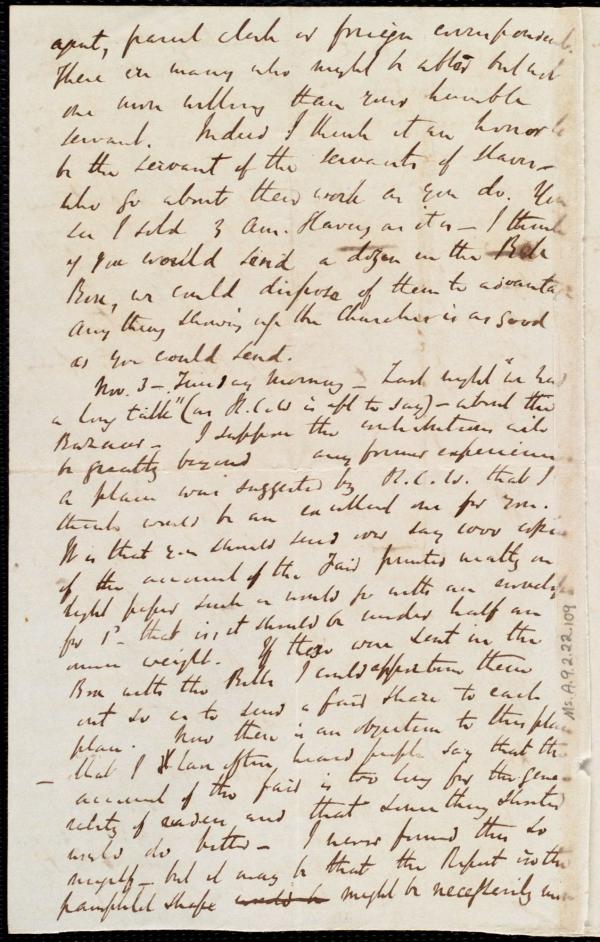 agent, parcel clerk or foreign correspondent.
There are many who might be abler but not
one more willing than your humble
servant. Indeed I think it an honor to
be the servant of the servants of slaves—
who go about their work as you do. You
see I sold 3 Am. Slavery as it is — I think
if you would send a dozen in the
Box, we could dispose of them to advantage
Any thing showing up the Churches is as good
as you could send.
Nov. 3 — Tuesday Morning — Last night "we had
a long talk" (as R.D.W is apt to say) — about the
Bazaar — I suppose the contributions will
be greatly beyond any former experience
a plan was suggested by R.D.W. that I
think would be an excellent one for you.
It is that you should send over say 1000 copies
of the account of the Fair printed neatly on
light paper such as would go with an envelope
for 1d — that is, it should be under half an
ounce weight. If these were sent in the
Box with the Bells I could apportion them
out so as to send a fair share to each
place. Now there is an objection to this plan
— that I have often heard people say that the
account of the fair is too long for the gene-
rality of readers and that something shorter
would do better — I never found this so
myself — but it may be that the Report in the
pamphlet shape might be necessarily
Ms. A. 9. 2. 22. 109